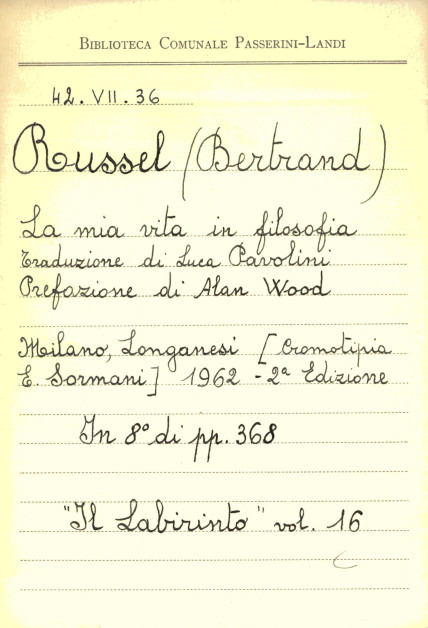 BIBLIOTECA COMUNALE PASSERINI-LANDI
42. VII. 36
Russel (Bertrand)
La mia vita in filosofia
Traduzione di Luca Pavolini
Prefazione di Alan Wood
Milano, Longanesi [Cromotipia
E. Sormani] 1962 - 2ª Edizione
In 8° di pp. 368
"Il Labirinto" vol. 16